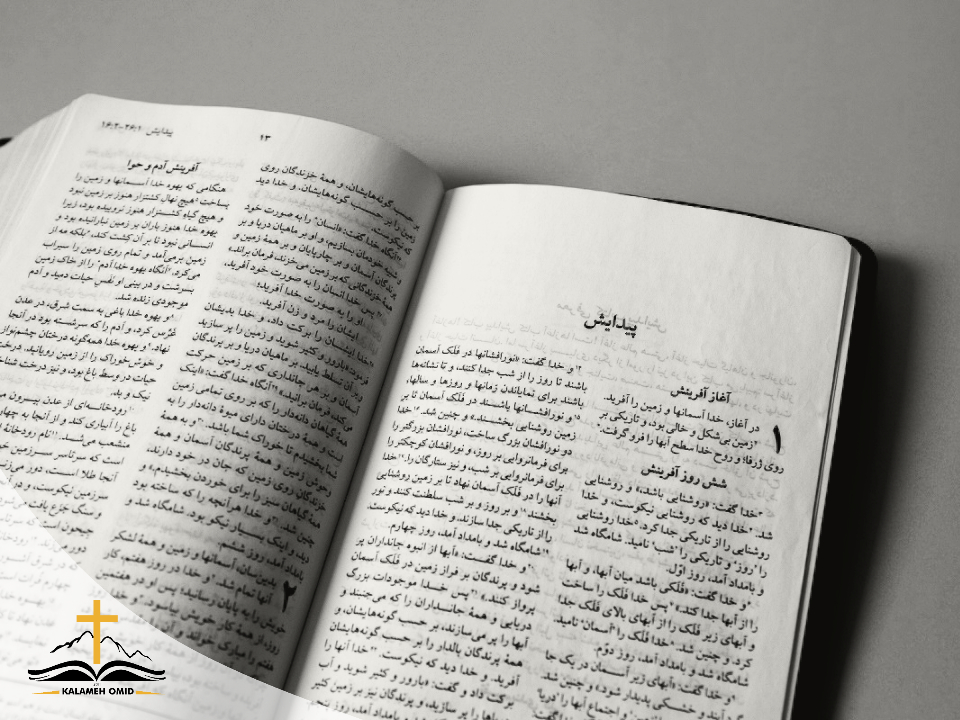 پیدایش
آغاز آفرینش
۱
در آغاز، خدا آسمانها و زمین را آفرید.
زمین بی‌شکل و خالی بود، و تاریکی بر
روی ژرفا؛ و روح خدا سطح آبها را فرو گرفت.
شش روز آفرینش
خدا گفت: «روشنایی باشد،» و روشنایی
شد. خدا دید که روشنایی نیکوست، و خدا
روشنایی را از تاریکی جدا کرد. خدا روشنایی
را 'روز' و تاریکی را 'شب' نامید. شامگاه شد
و بامداد آمد، روز اوّل.
و خدا گفت: «فلکی باشد میان آبها، و آبها
را از آبها جدا کند.» پس خدا فلک را ساخت
و آبهای زیر فلک را از آبهای بالای فلک جدا
کرد. و چنین شد. خدا فلک را 'آسمان' نامید.
شامگاه شد و بامداد آمد، روز دوّم.
و خدا گفت: «آبهای زیر آسمان در یک جا
گرد آیند و خشکی پدیدار شود،» و چنین شد.
و خدا گفت: «نورافشانها در فلک آسمان
باشند تا روز را از شب جدا کنند، و تا نشانه‌ها
باشند برای نمایاندن زمانها و روزها و سالها،
و نورافشانها باشند در فلک آسمان تا بر
زمین روشنایی بخشند.» و چنین شد. خدا
دو نورافشان بزرگ ساخت، نورافشان بزرگتر را
برای فرمانروایی بر روز، و نورافشان کوچکتر را
برای فرمانروایی بر شب، و نیز ستارگان را. خدا
آنها را در فلک آسمان نهاد تا بر زمین روشنایی
بخشند، و بر روز و بر شب سلطنت کنند و نور
را از تاریکی جدا سازند، و خدا دید که نیکوست.
شامگاه شد و بامداد آمد، روز چهارم.
و خدا گفت: «آبها از انبوه جانداران پر
شود و پرندگان بر فراز زمین در فلک آسمان
پرواز کنند.» پس خدا موجودات بزرگ
دریایی و همۀ جانداران را که می‌جنبند و
آبها را پر می‌سازند، بر حسب گونه‌هایشان، و
همۀ پرندگان بالدار را بر حسب گونه‌هایشان
آفرید. و خدا دید که نیکوست. خدا آنها را
برکت داد و گفت: «بارور و کثیر شوید و آب
۱۳
پیدایش
حسب گونه‌هایشان، و همۀ خزندگان روی
زمین را بر حسب گونه‌هایشان. و خدا دید
که نیکوست.
آنگاه خدا گفت: «انسان را به صورت خود
و شبیه خودمان بسازیم، و او بر ماهیان دریا و بر
پرندگان آسمان و بر چارپایان و بر همۀ زمین و
همۀ خزندگانی که بر زمین می‌خزند، فرمان براند.»
پس خدا انسان را به صورت خود آفرید،
او را به صورت خدا آفرید؛
ایشان را مرد و زن آفرید.
خدا ایشان را برکت داد، و خدا بدیشان
فرمود: «بارور و کثیر شوید و زمین را پر سازید
و بر آن تسلط یابید. بر ماهیان دریا و بر پرندگان
آسمان و بر هر جانداری که بر زمین حرکت
می‌کند فرمان برانید.» آنگاه خدا گفت: «اینک
همۀ گیاهان دانه‌دار را که بر روی تمامی زمین
است و همۀ درختان میوۀ دانه‌دار را به
شما بخشیدم تا خوراک شما باشد؛ و به همۀ
وحوش زمین و همۀ پرندگان آسمان و همۀ
خزندگان روی زمین که جان در خود دارند،
همۀ گیاهان سبز را برای خوردن بخشیدم.» و
چنین شد. و خدا هرآنچه را که ساخته بود
دید، و اینک بسیار نیکو بود. شامگاه شد و
بامداد آمد، روز ششم.
۲
بدین‌سان، آسمانها و زمین و همۀ لشکر
آنها تمام شد. و خدا در روز هفتم، کار
خویش را به پایان رسانید؛ پس او در هفتمین
روز از همۀ کار خویش بیاسود.
آفرینش آدم و حوا
هنگامی که یهوه خدا آسمانها و زمین را
بساخت هیچ نهال کشتزار هنوز بر زمین نبود
و هیچ گیاه کشتزار هنوز نروییده بود، زیرا
یهوه خدا هنوز باران بر زمین نبارانیده بود و
انسانی نبود تا بر آن کشت کند، بلکه مه از
زمین برمی‌آمد و تمام روی زمین را سیراب
می‌کرد. آنگاه یهوه خدا آدم را از خاک زمین
بسرشت و در بینی او نفس حیات دمید و آدم
موجودی زنده شد.
و یهوه خدا باغی به سمت شرق، در عدن
غرس کرد، و آدم را که سرشته بود در آنجا
نهاد. و یهوه خدا همه‌گونه درختان چشم‌نواز
و خوش خوراک را از زمین رویانید.
حیات در وسط باغ بود، و نیز درخت
نیک و بد.
رودخانه‌ای از عدن بیرون
باغ را آبیاری کند و از آنجا به چهار
منشعب می‌شد. نام رودخانۀ
است که سرتاسر سرزمین
آنجا طلا است.
KALAMEH OMID